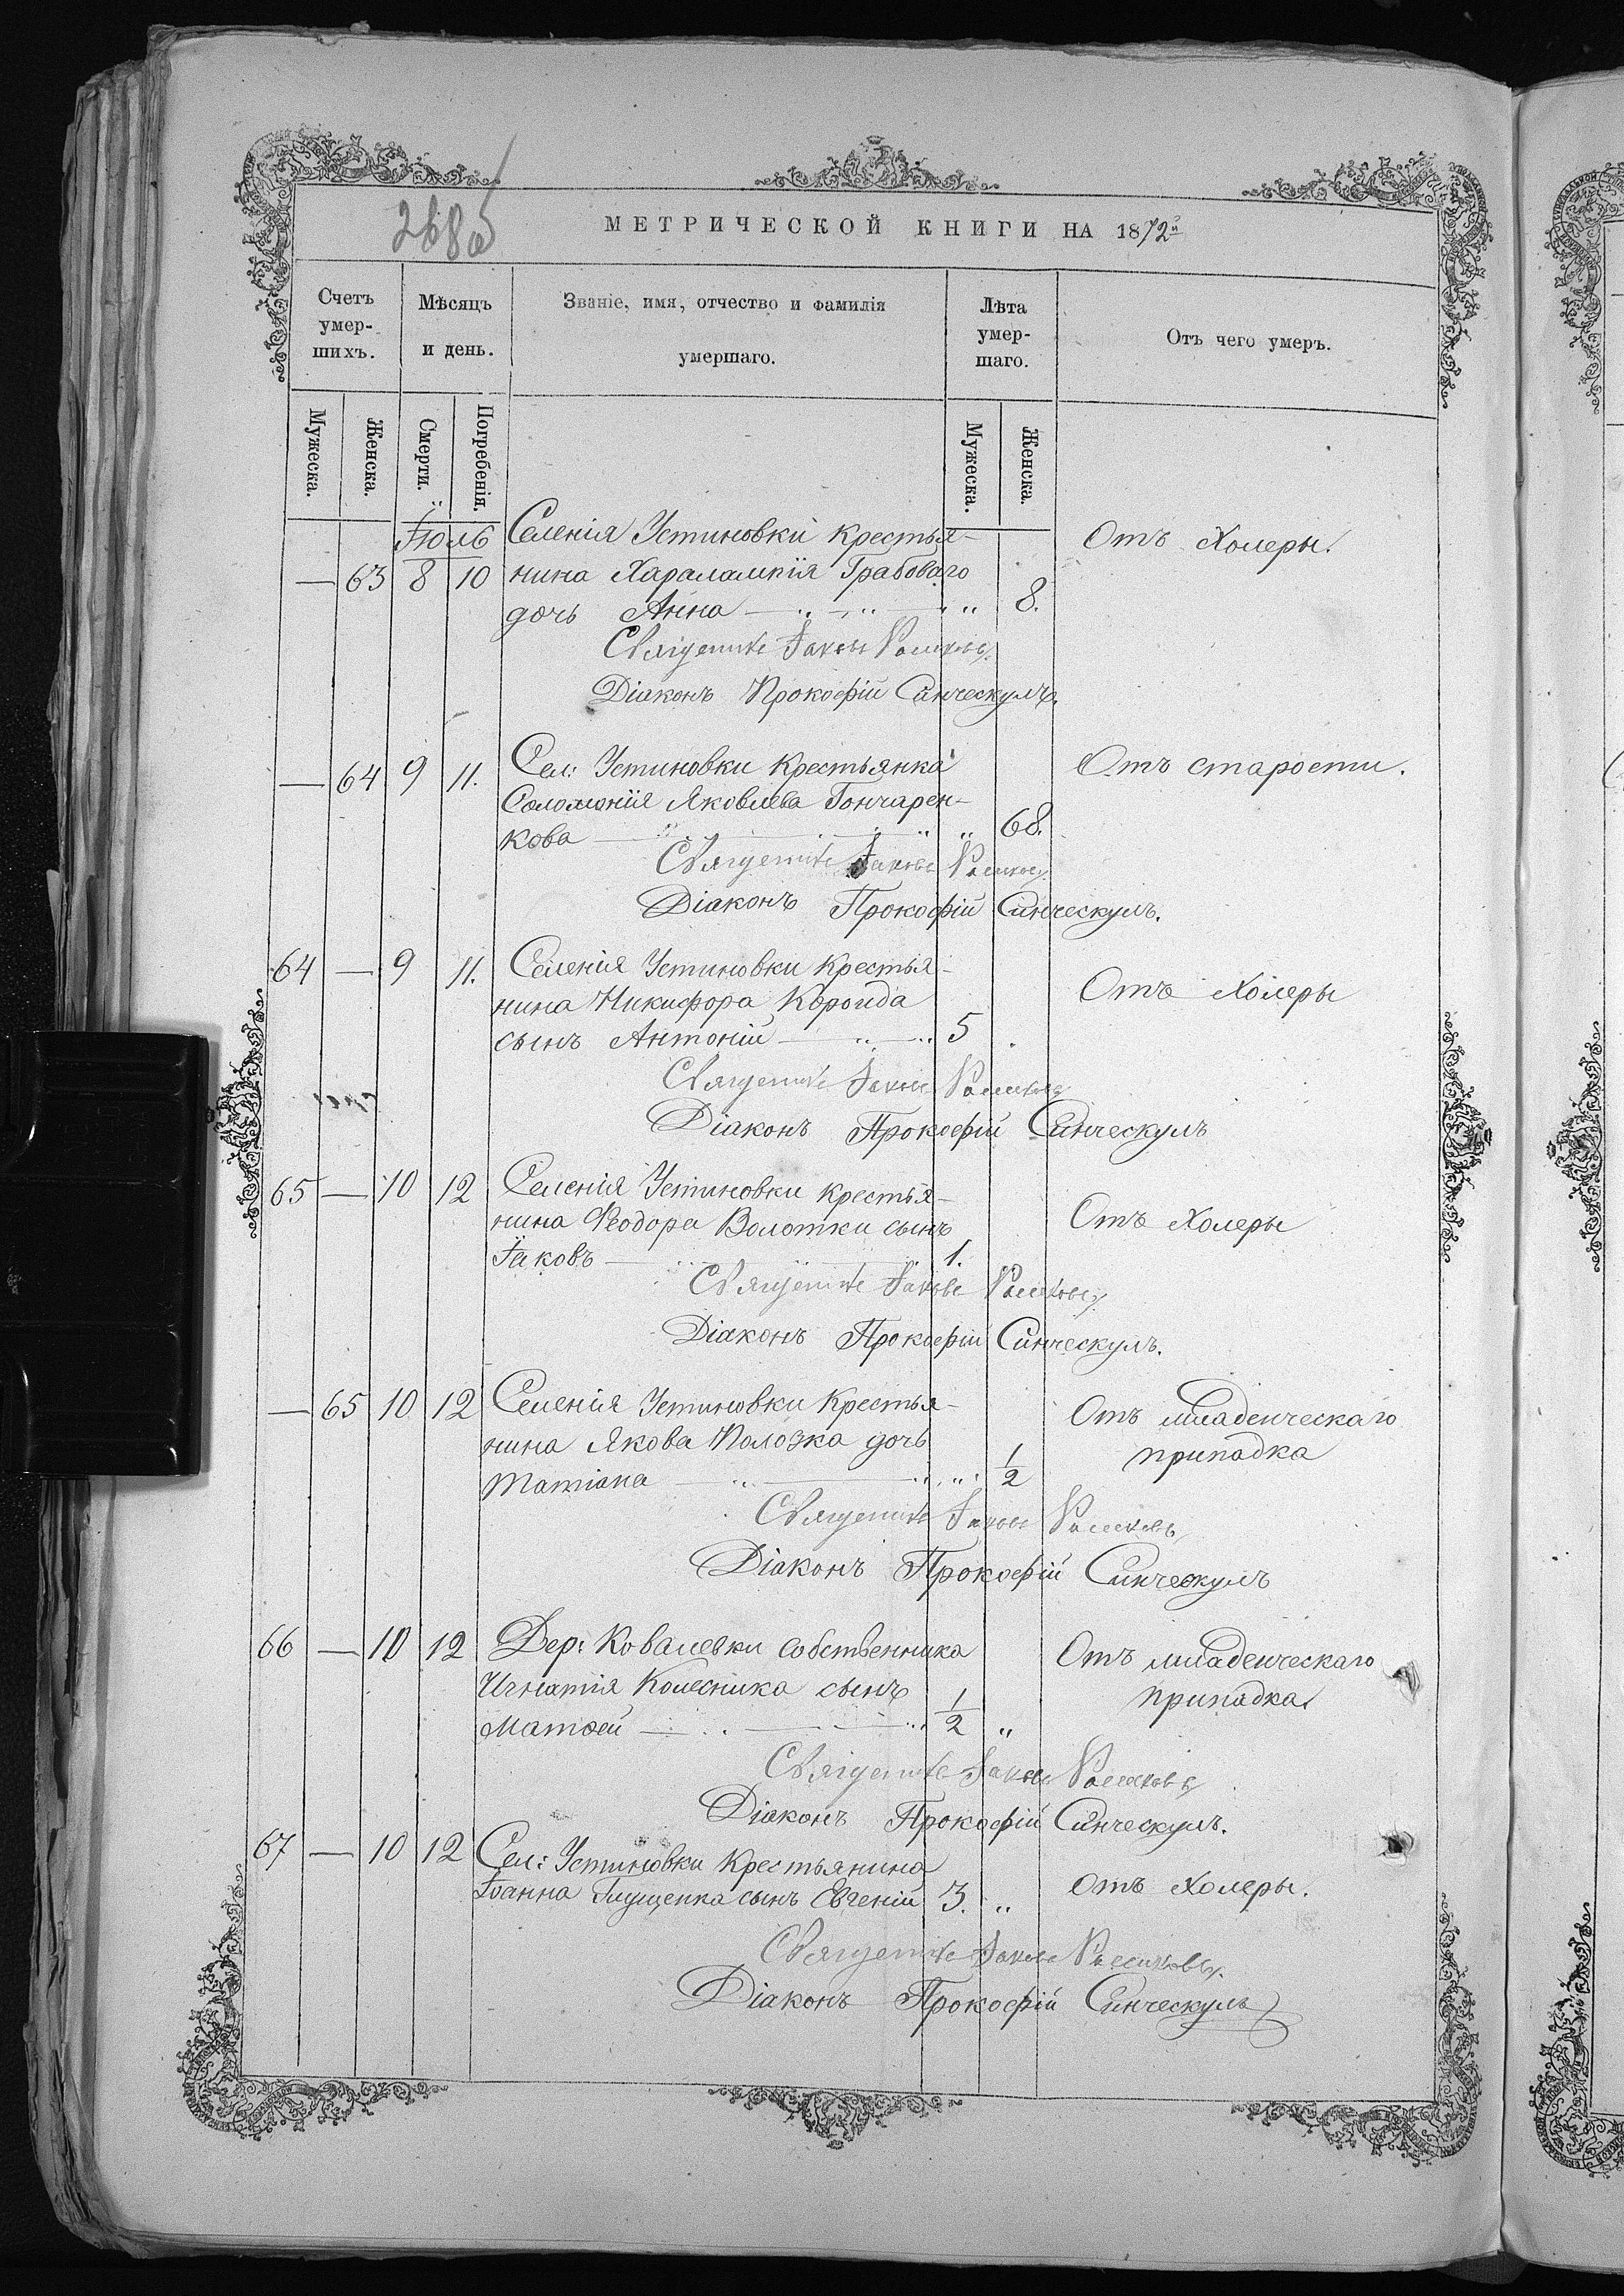 МЕТРИЧЕСКОЙ КНИГИ НА 1872й
Счетъ умер-шихъ.
Мѣсяцъ и день.
Званіе, имя, отчество и фамилія умершаго.
Лѣта умер-шаго.
Отъ чего умеръ.
Мужеска.
Женска.
Смерти.
Погребенія.
Мужеска.
Женска.
Іюль
Селенія Устиновки крестья-
— 63 8 10 нина Харалампія Грабоваго
дочь Анна — „ — „ — „ 8.
Отъ Холеры.
Священникъ Іаковъ
Діаконъ Прокофій Синческулъ.
— 64 9 11. Сел: Устиновки крестьянка
Соломонія Яковлева Гончарен-
кова — „ — „ „ 68.
Отъ старости.
Священникъ Іаковъ
Діаконъ Прокофій Синческулъ.
64 — 9 11. Селенія Устиновки крестья-
нина Никифора
сынъ Антоній — „ — „ 5
Отъ Холеры
Священникъ Іаковъ
Діаконъ Прокофій Синческулъ
65 — 10 12 Селенія Устиновки крестья-
нина Ѳеодора Волотки сынъ
Іаковъ — 1.
Отъ Холеры
Священникъ Іаковъ
Діаконъ Прокофій Синческулъ.
— 65 10 12 Селенія Устиновки крестья-
нина Якова Полозка дочь
Татіана — „ — „ „ 1/2
Отъ младенческаго
припадка
Священникъ Іаковъ
Діаконъ Прокофій Синческулъ
66 — 10 12 Дер: Ковалевки собственника
Игнатія Колесника сынъ
Матѳей — „ — „ 1/2 „
Отъ младенческаго
припадка
Священникъ Іаковъ
Діаконъ Прокофій Синческулъ.
67 — 10 12 Сел: Устиновки крестьянина
Іоанна Глущенка сынъ Евгеній 3. „
Отъ Холеры.
Священникъ Іаковъ
Діаконъ Прокофій Синческулъ